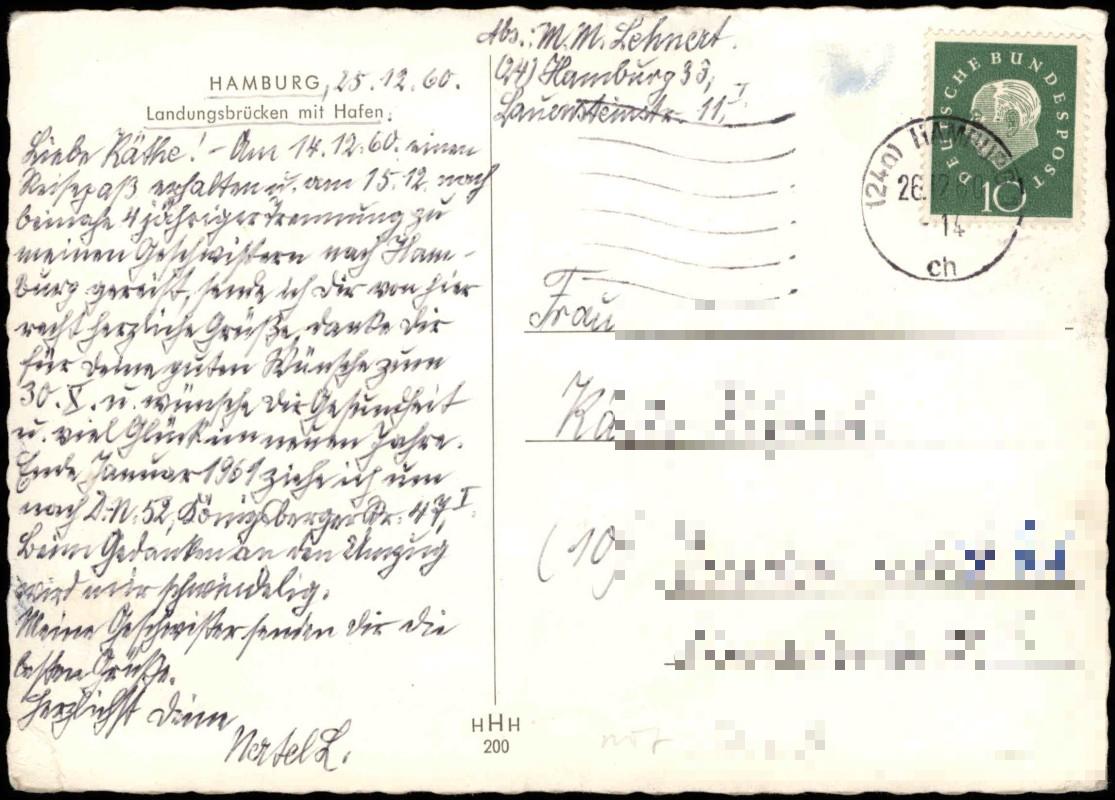 Abs.: M. M. Lehnert.
(24) Hamburg 33,
Lauensteinstr. 11, I
HAMBURG, 25.12.60.
Landungsbrücken mit Hafen.
Liebe Käthe! - Am 14.12.60. einen
Reisepaß erhalten u. am 15.12. nach
beinahe 4 jähriger Trennung zu
meinen Geschwistern nach Ham-
burg gereist, sende ich Dir von hier
recht herzliche Grüße, danke Dir
für Deine guten Wünsche zum
30. X. u. wünsche Dir Gesundheit
u. viel Glück im neuen Jahre.
Ende Januar 1961 ziehe ich um
nach D.-N. 52, Königsbergerstr. 47, I.
Beim Gedanken an den Umzug
wird mir schwindelig.
Meine Geschwister senden Dir die
besten Grüße.
Herzlichst Deine
L.
DEUTSCHE BUNDESPOST
10
(24a) HAMBURG
26.12.60
- 14
ch
Frau
Kä
(10)
HHH
200